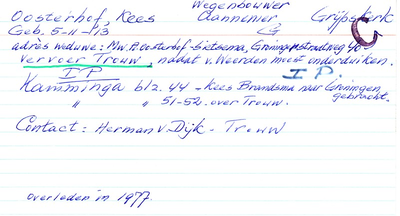 Wegenbouwer
Oosterhof, Kees Aannemer Grijpskerk
Geb. 5-11-'13 CG
adres weduwe: Mw. P. Oosterhof-Sietsema, Groningerstraatweg 40
Vervoer Trouw, nadat v. Weerden moest onderduiken.
I P I P.
Kamminga blz. 44 - Kees Brandsma naar Groningen gebracht.
" " 51-52. over Trouw.
Contact: Herman v. Dijk - Trouw
overleden in 1977